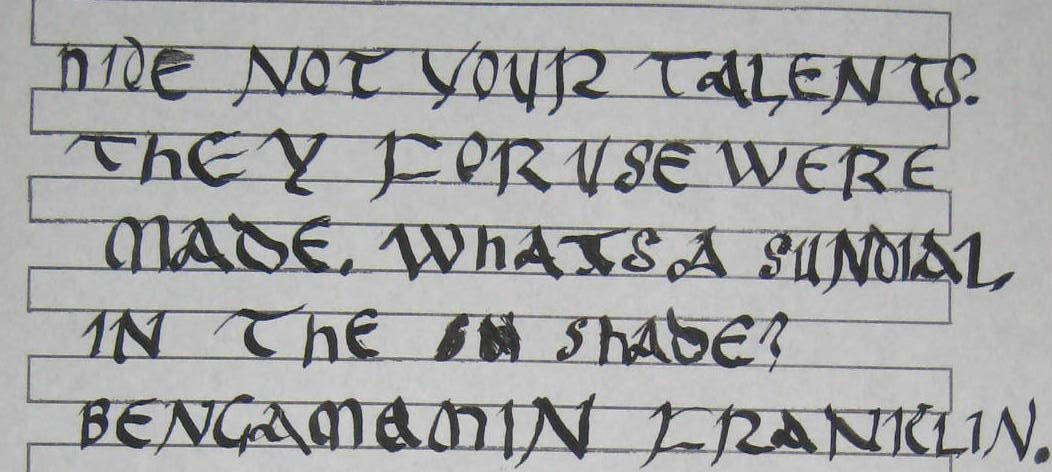 HIDE NOT YOUR TALENTS.
THEY FOR USE WERE
MADE. WHATS A SUNDIAL
IN THE SHADE?
BENGAMEMIN FRANKLIN.